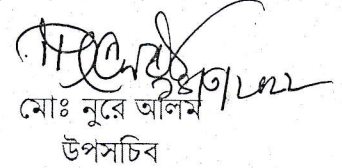 মোঃ নুরে আলম
উপসচিব